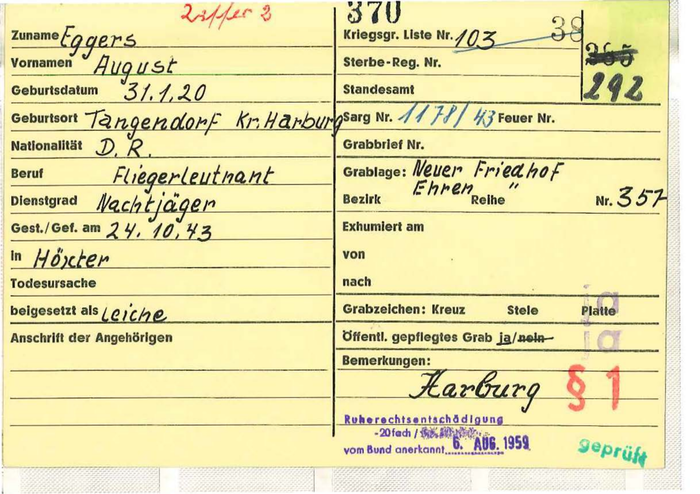 370
38
Zuname Eggers
Kriegsgr. Liste Nr. 103
Vornamen August
Sterbe-Reg. Nr.
365
292
Geburtsdatum 31.1.20
Standesamt
Geburtsort Tangendorf Kr. Harburg
Sarg Nr. 1178/43 Feuer Nr.
Nationalität D.R.
Grabbrief Nr.
Beruf Fliegerleutnant
Grablage: Neuer Friedhof
Ehren "
Dienstgrad Nachtjäger
Bezirk Reihe Nr. 357
Gest./Gef. am 24.10.43
Exhumiert am
In Höxter
von
Todesursache
nach
beigesetzt als Leiche
Grabzeichen: Kreuz Stele Platte
ja
Anschrift der Angehörigen
Öffentl. gepflegtes Grab ja/nein
ja
Bemerkungen:
Harburg
§ 1
Ruherechtsentschädigung
-20fach /
vom Bund anerkannt 6. AUG. 1959
geprüft